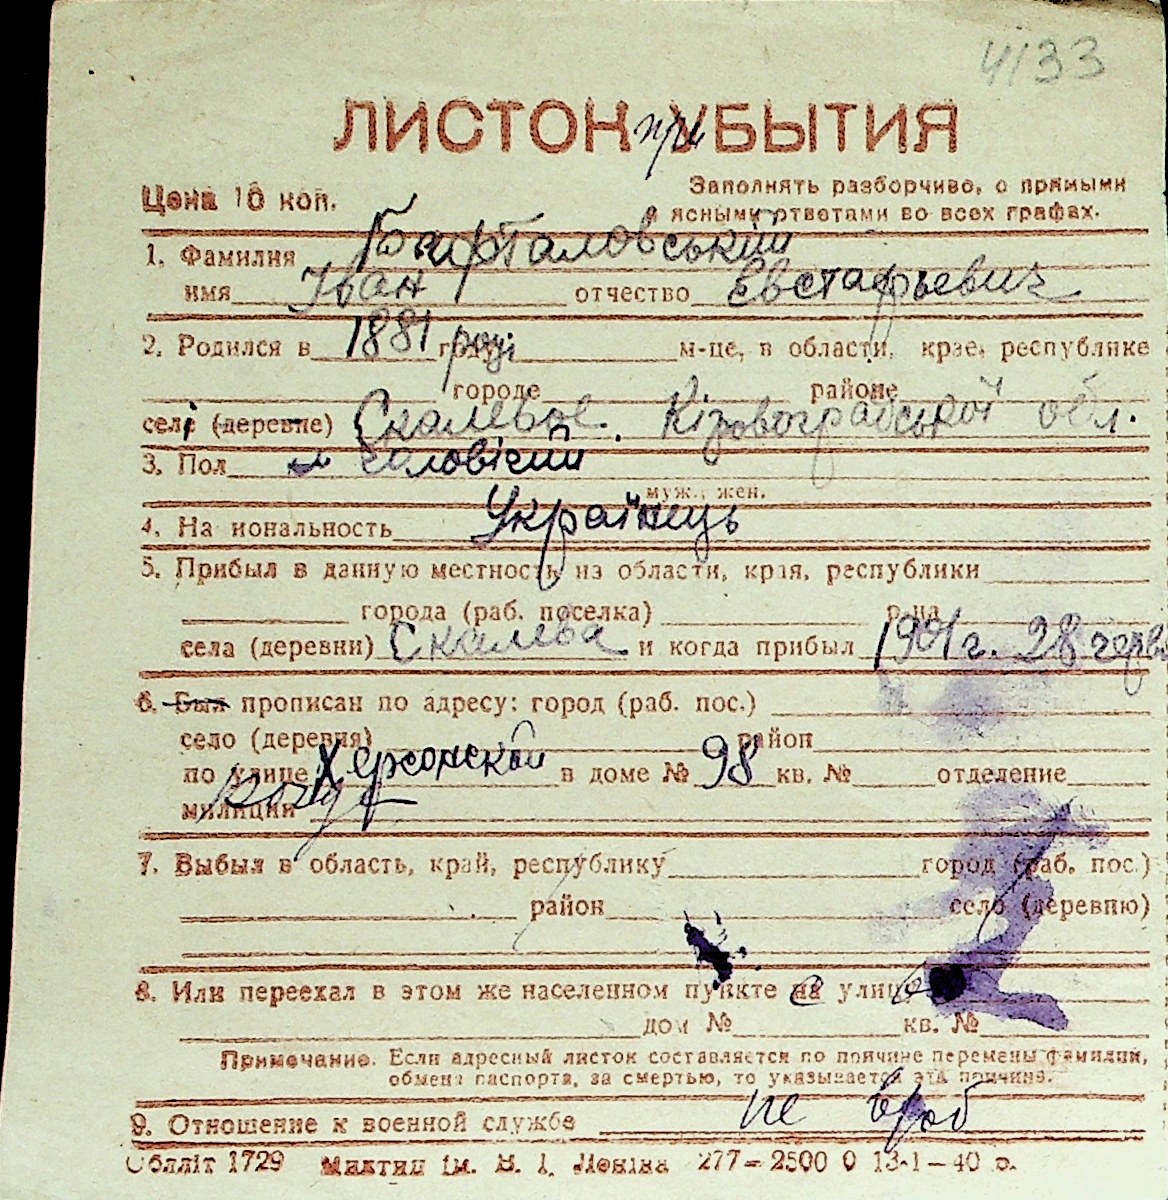 4133
ЛИСТОК при УБЫТИЯ
Цена 10 коп.
Заполнять разборчиво, с прямыми
и ясными ответами во всех графах.
1. Фамилия Барталовський
имя Іван отчество Евстафьевич
2. Родился в 1881 году році м-це, в области, крае, республике
городе районе
селі (деревне) Скалевое. Кіровоградської обл.
3. Пол чоловічий
муж., жен.
4. Национальность Українець
5. Прибыл в данную местность из области, края, республики
города (раб. поселка) р-на
села (деревни) Скалева и когда прибыл 1901 г. 28 черв
6. Был прописан по адресу: город (раб. пос.)
село (деревня) район
по улице Херсонской в доме № 98 кв. № отделение
милиции
7. Выбыл в область, край, республику город (раб. пос.)
район село (деревню)
8. Или переехал в этом же населенном пункте на улицу
дом № кв. №
Примечание. Если адресный листок составляется по причине перемены фамилии,
обмена паспорта, за смертью, то указывается эта причина.
9. Отношение к военной службе не
Обллiт 1729 ім. В. І. Леніна 277—2500 0 13-1—40 р.